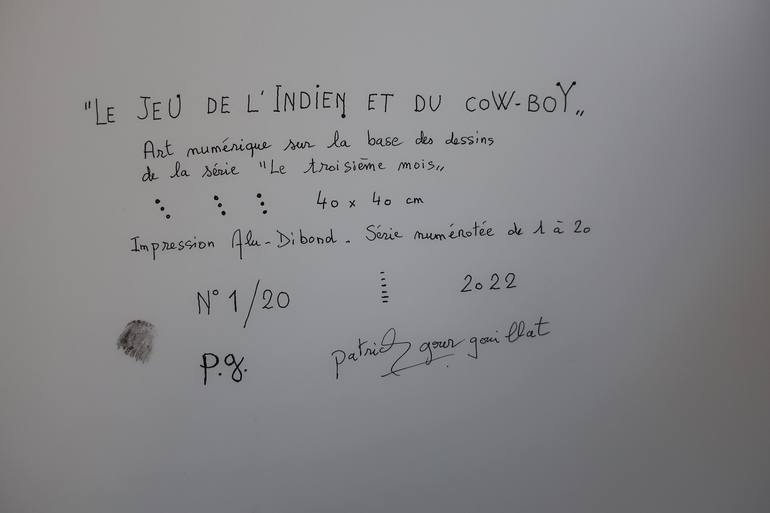 "LE JEU DE L'INDIEN ET DU COW-BOY„
Art numérique sur la base des dessins
de la série "Le troisième mois„
40 x 40 cm
Impression Alu-Dibond. Série numérotée de 1 à 20
N° 1/20 2022
p.g. patrick gourgouillat